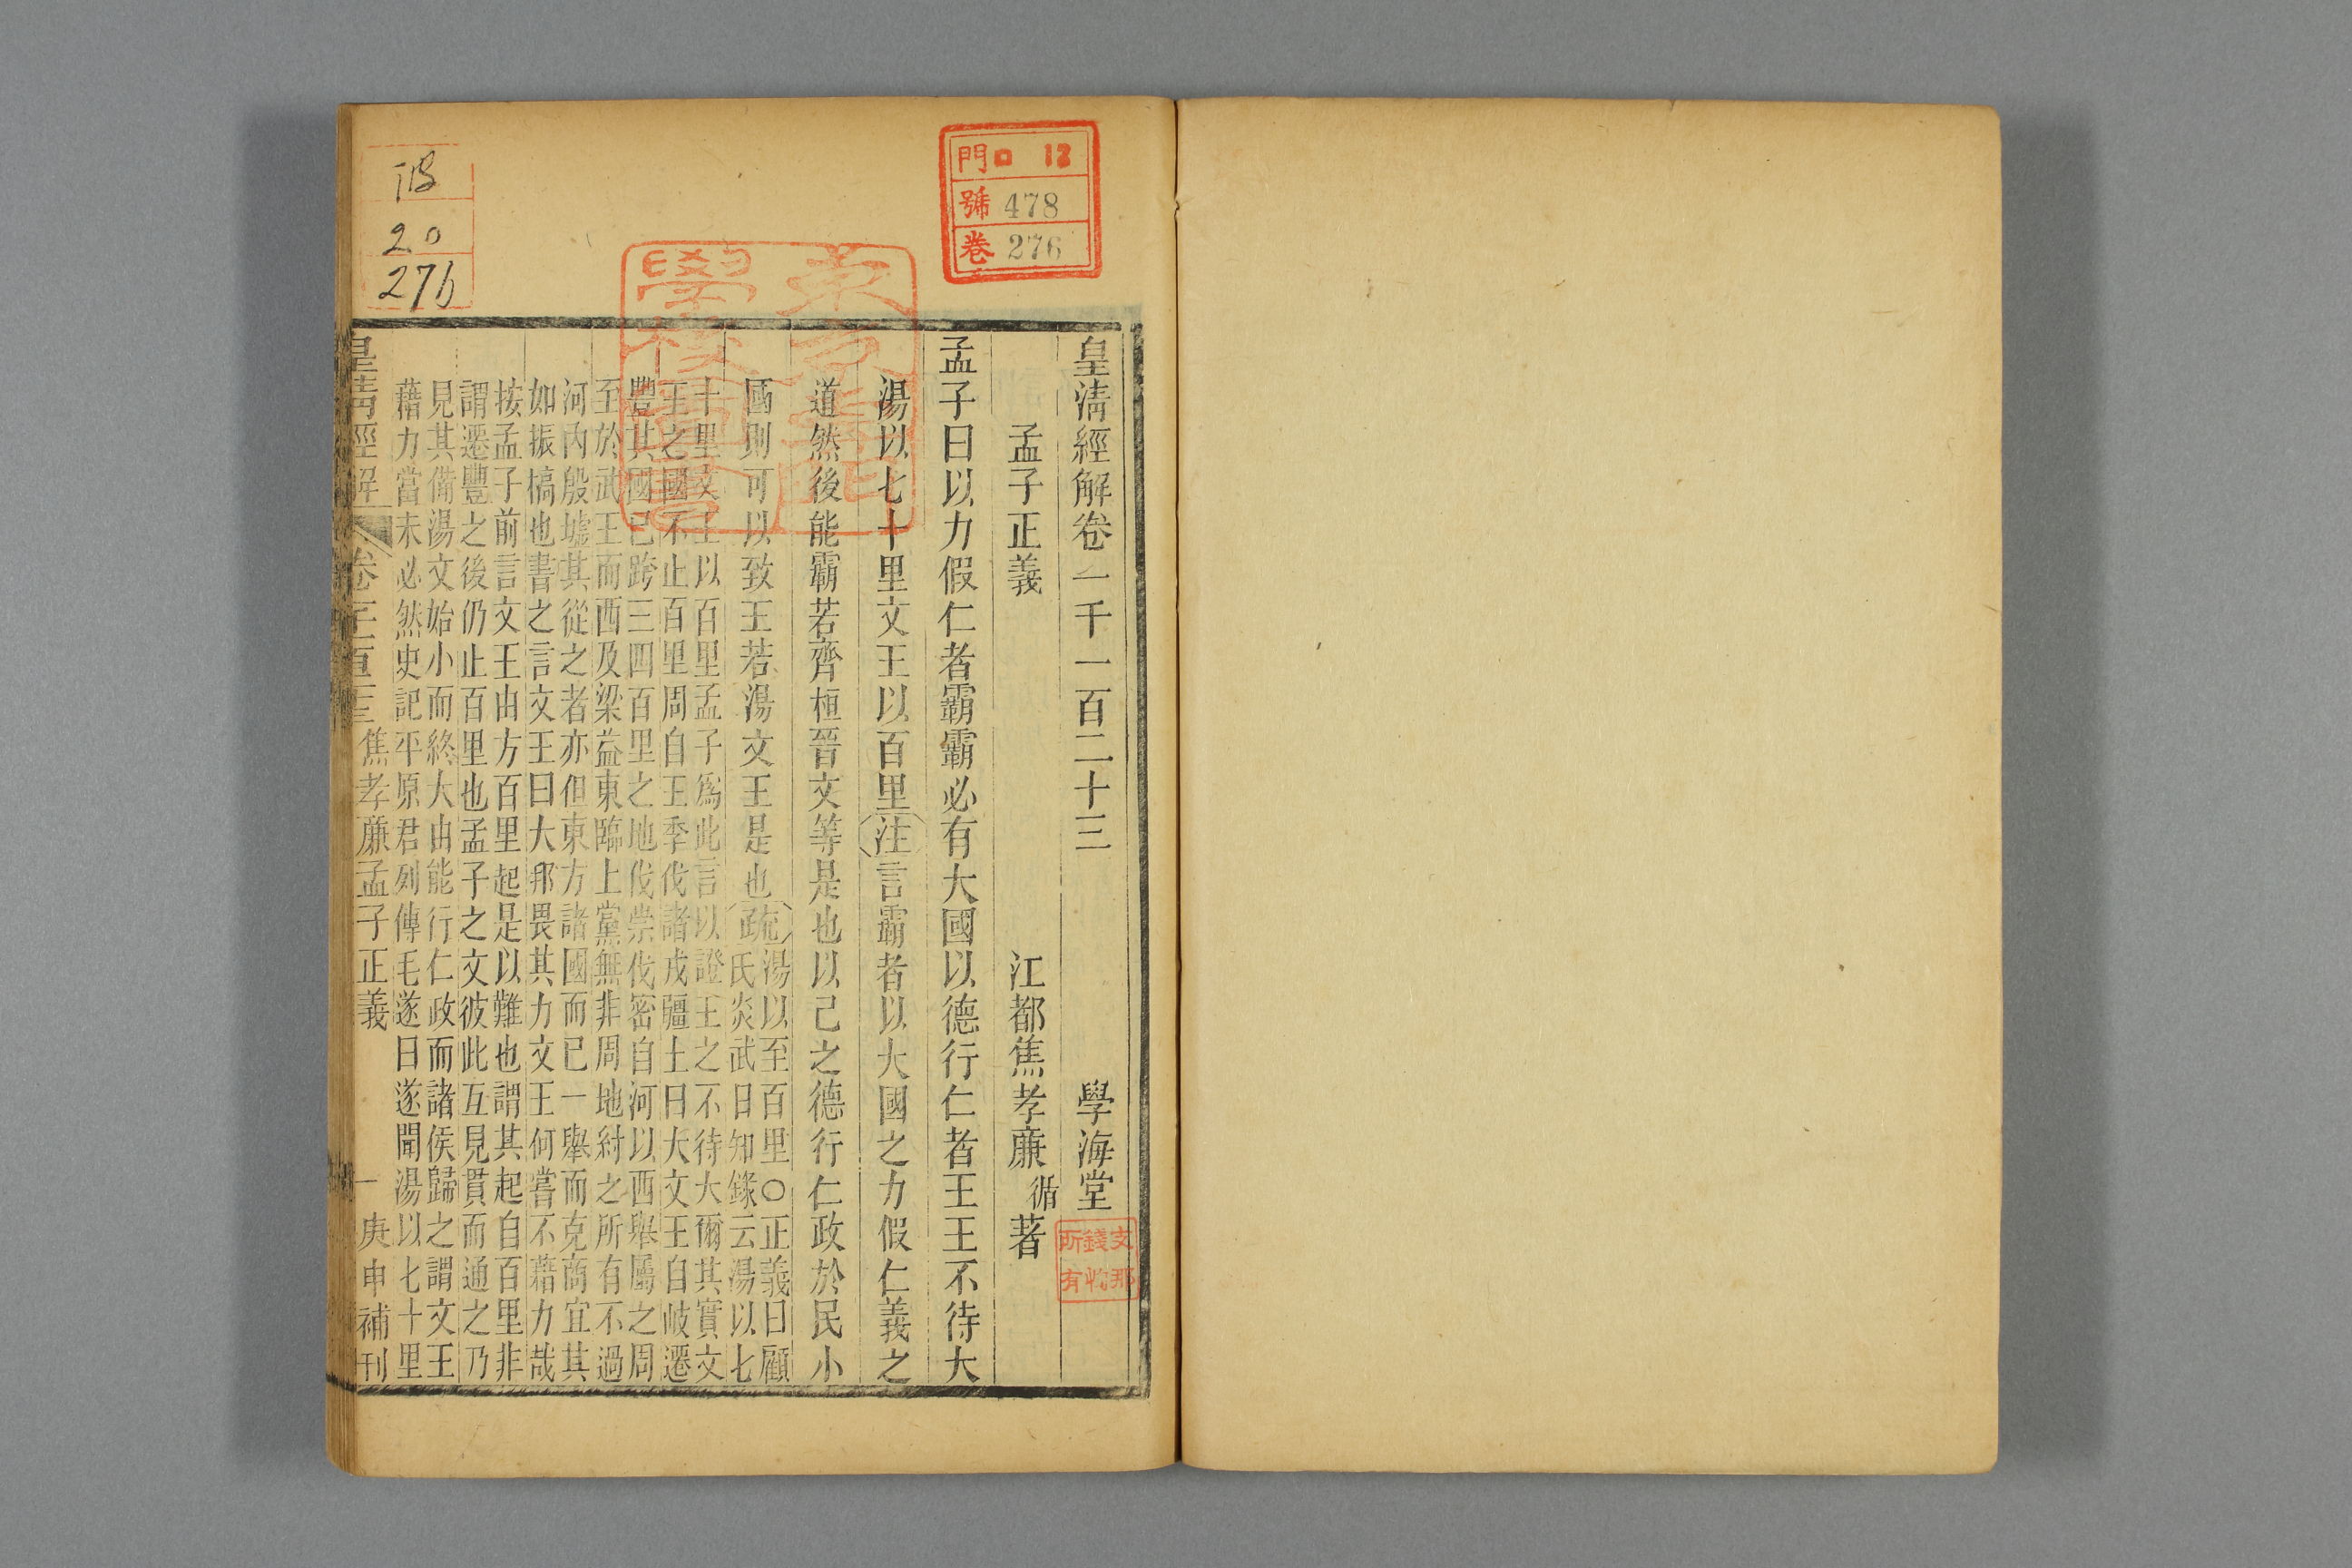 皇淸經解卷一千一百二十三 學海堂
孟子正義 江都焦孝廉循著
孟子曰以力假仁者霸霸必有大國以德行仁者王王不待大
湯以七十里文王以百里注言霸者以大國之力假仁義之
道然後能霸若齊桓晉文等是也以己之德行仁政於民小
國則可以致王若湯文王是也疏
湯以至百里○正義曰顧
氏炎武日知錄云湯以七
十里文王以百里孟子爲此言以證王之不待大爾其實文
王之國不止百里周自王季伐諸戎疆土日大文王自岐遷
豐其國已跨三四百里之地伐崇伐密自河以西舉屬之周
至於武王而西及梁益東臨上黨無非周地紂之所有不過
河內殷墟其從之者亦但東方諸國而已一舉而克商宜其
如振槁也書之言文王曰大邦畏其力文王何嘗不藉力哉
按孟子前言文王由方百里起是以難也謂其起自百里非
謂遷豐之後仍止百里也孟子之文彼此互見貫而通之乃
見其備湯文始小而終大由能行仁政而諸侯歸之謂文王
藉力當未必然史記平原君列傳毛遂曰遂聞湯以七十里
皇淸經解 卷 焦孝廉孟子正義 一 庚申補刊
門口 12
號 478
卷 276
20
276
支那
錢恂
所有